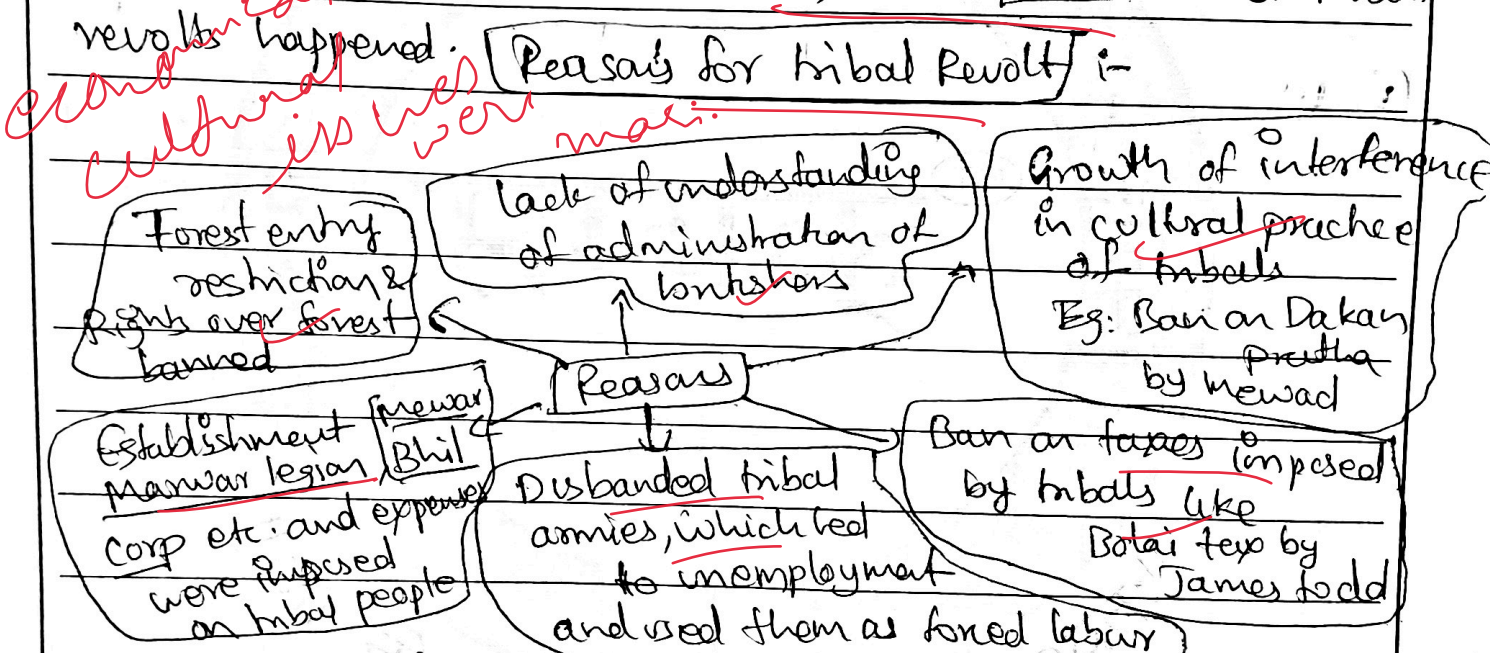 revolts happened. Reasons for tribal Revolt :-
economic
cultural
issues
were
Forest entry
restriction &
Rights over forest
banned
Lack of understanding
of administration of
britishers
Growth of interference
in cultral practice
of tribals
Eg: Ban on Dakan
pratha
by mewad
Reasons
Establishment Mewar
Marwar legion, Bhil
corp etc. and expenses
were imposed
on tribal people
Disbanded tribal
armies, which led
to unemployment
and used them as forced labur
Ban on taxes imposed
by tribals like
Bolai tax by
James todd